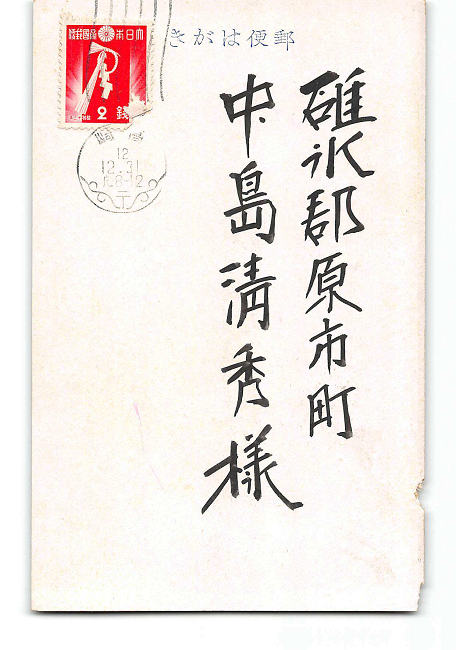 郵便はがき
碓氷郡原市町
中島清秀様
大日本帝國郵便
2銭
12
12.31
后8-12